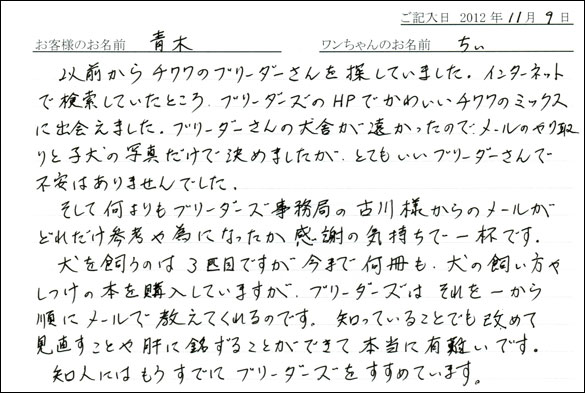 ご記入日 2012年11月9日
お客様のお名前 青木 ワンちゃんのお名前 ちぃ
以前からチワワのブリーダーさんを探していました。インターネット
で検索していたところ、ブリーダーズのHPでかわいいチワワのミックス
に出会えました。ブリーダーさんの犬舎が遠かったのでメールのやり取
りと子犬の写真だけで決めましたが、とてもいいブリーダーさんで
不安はありませんでした。
そして何よりもブリーダーズ事務局の古川様からのメールが
どれだけ参考や為になったか感謝の気持ちで一杯です。
犬を飼うのは3匹目ですが今まで何冊も、犬の飼い方や
しつけの本を購入していますが、ブリーダーズはそれを一から
順にメールで教えてくれるのです。知っていることでも改めて
見直すことや肝に銘ずることができて本当に有難いです。
知人にはもうすでにブリーダーズをすすめています。